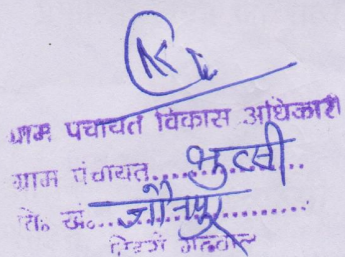 ग्राम पंचायत विकास अधिकारी
ग्राम पंचायत.....भुटसी.....
वि० खं०....जौनपुर..........
टिहरी गढ़वाल